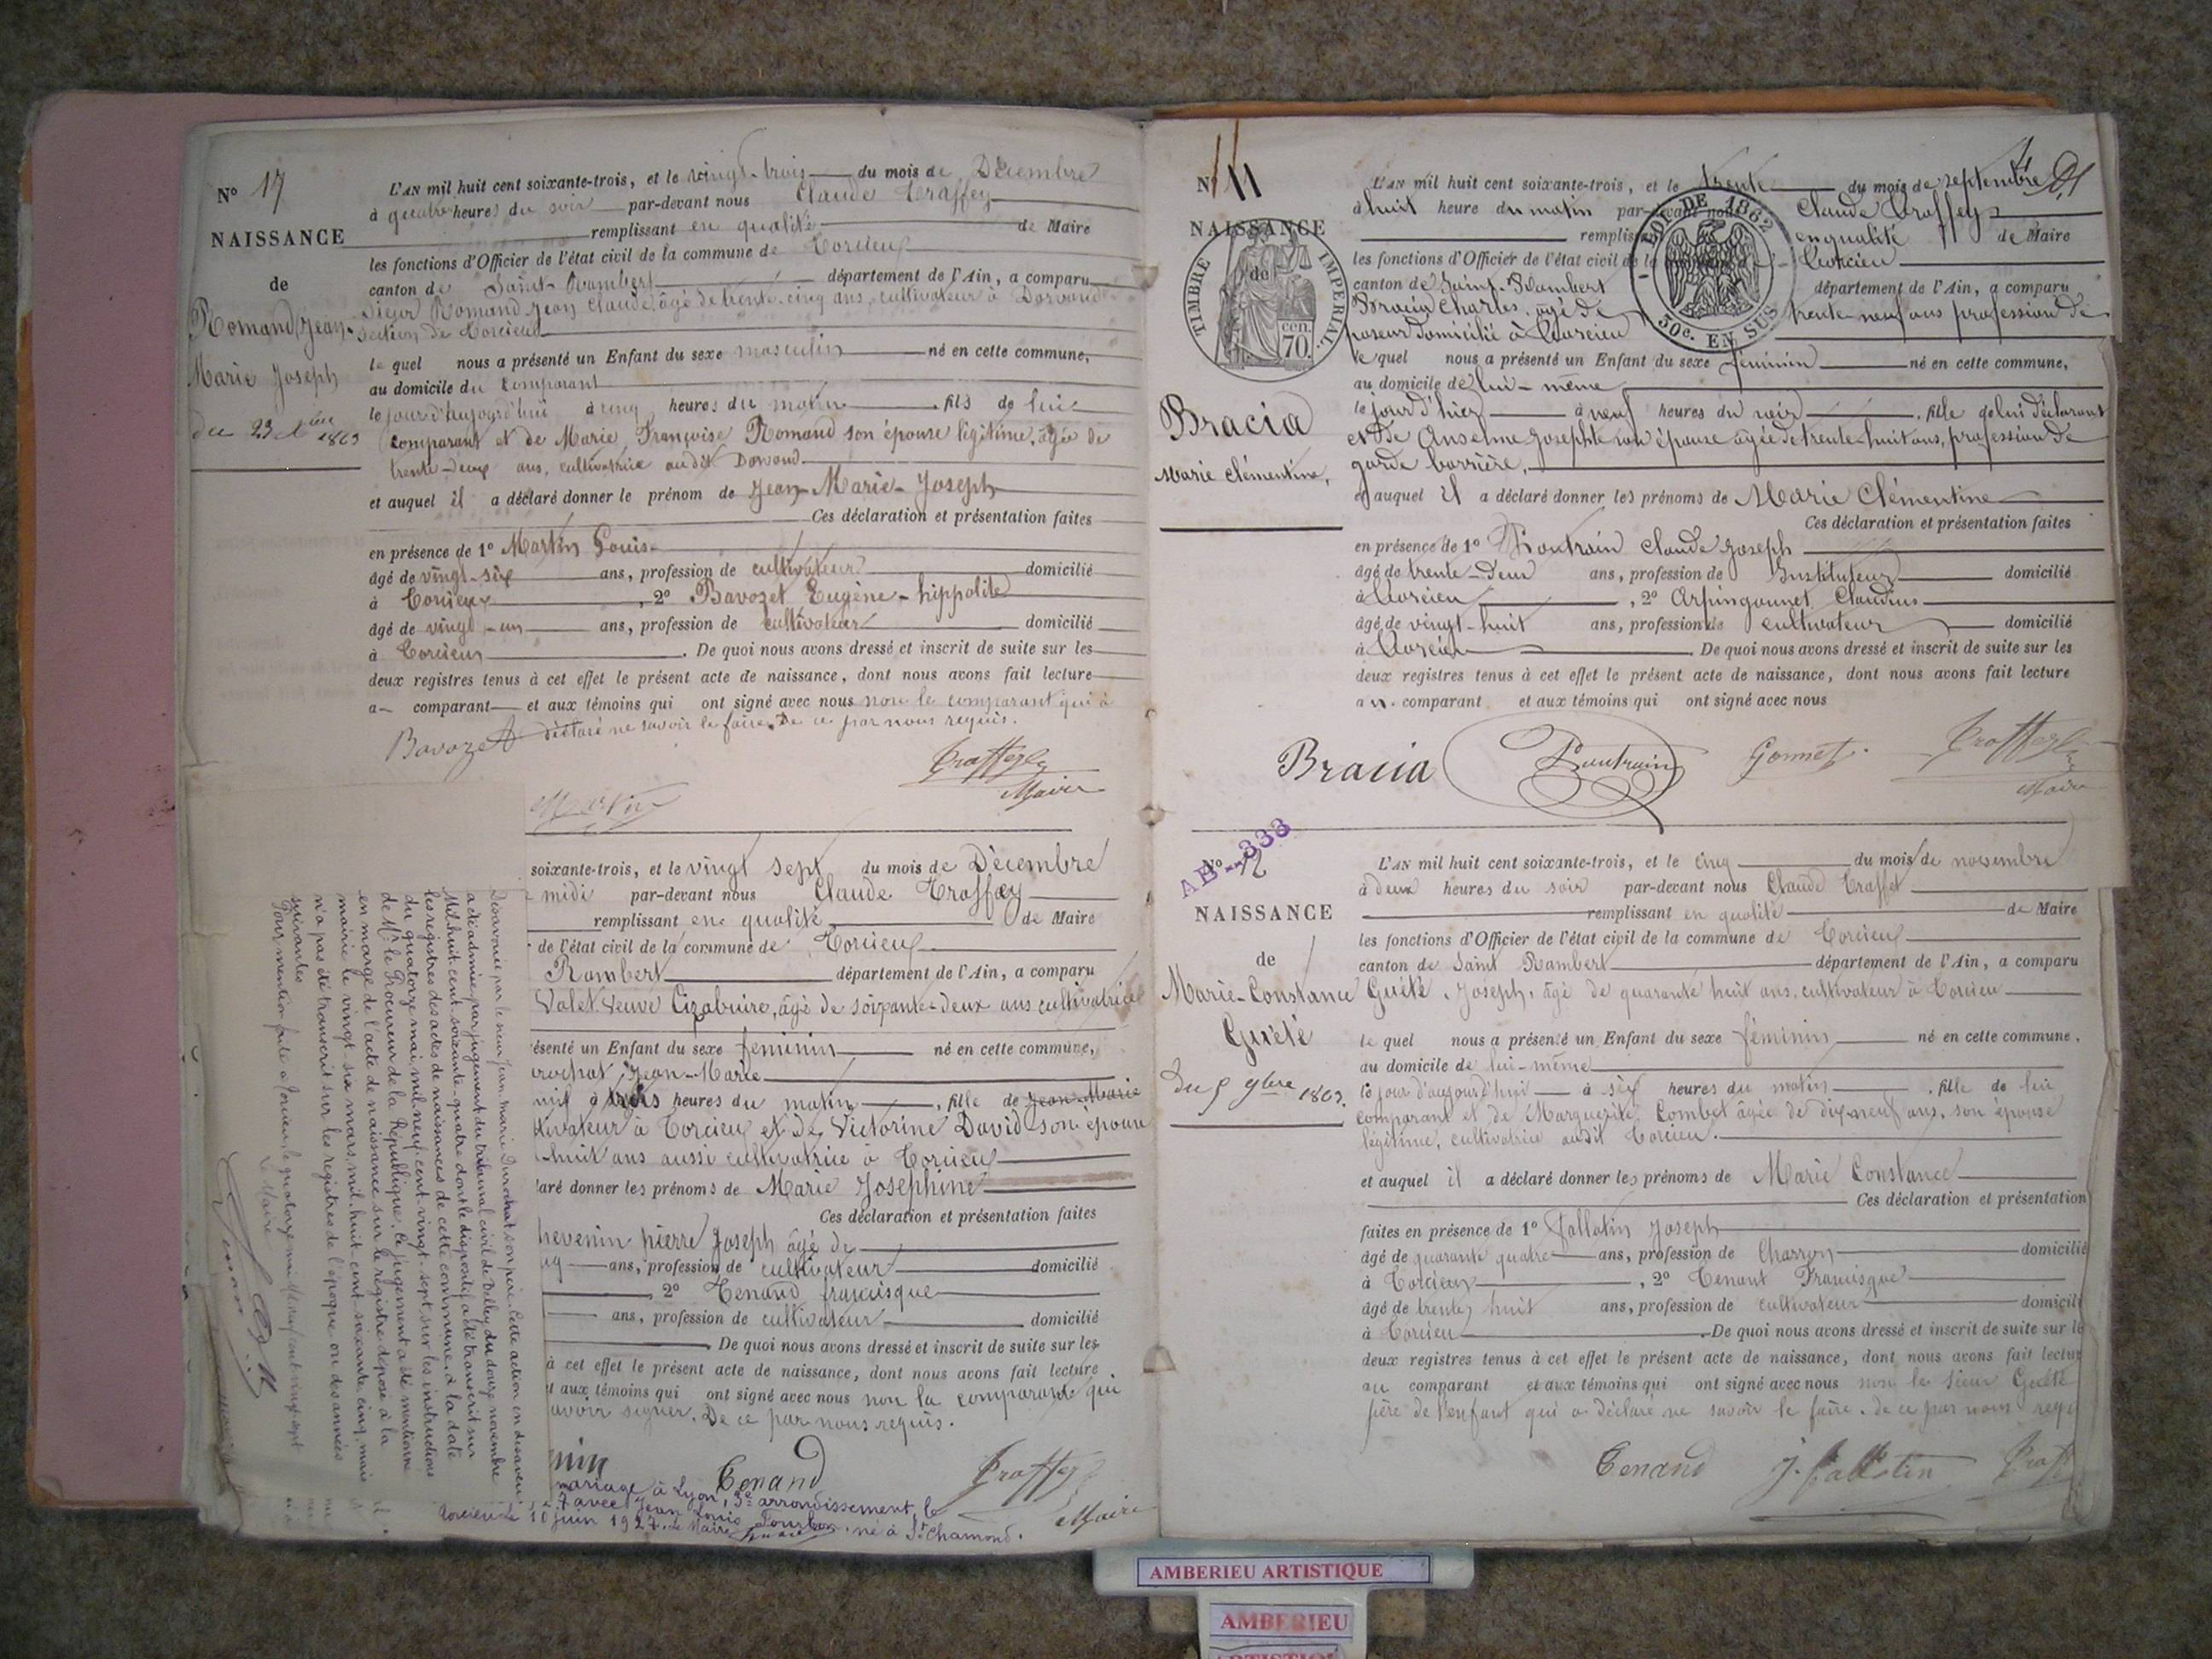 N° 17
NAISSANCE
de
Romand Jean-
Marie Joseph
du 23 Xbre
1863
L'AN mil huit cent soixante-trois, et le vingt-trois du mois de Décembre
à quatre heures du soir par-devant nous Claude Traffey
remplissant en qualité de Maire
les fonctions d'Officier de l'état civil de la commune de Torcieu
canton de Saint-Rambert département de l'Ain, a comparu
Sieur Romand Jean Claude, âgé de trente-cinq ans, cultivateur à Dorvand
section de Torcieu
le quel nous a présenté un Enfant du sexe masculin né en cette commune,
au domicile du comparant
le jour d'aujourd'hui à cinq heures du matin fils de lui
comparant et de Marie Françoise Romand son épouse légitime, âgée de
trente-deux ans, cultivatrice audit Dorvand
et auquel il a déclaré donner le prénom de Jean-Marie-Joseph
Ces déclaration et présentation faites
en présence de 1° Martin Louis
âgé de vingt-six ans, profession de cultivateur domicilié
à Torcieu, 2° Bavozet Eugène-hippolite
âgé de vingt-un ans, profession de cultivateur domicilié
à Torcieu. De quoi nous avons dressé et inscrit de suite sur les
deux registres tenus à cet effet le présent acte de naissance, dont nous avons fait lecture
a comparant et aux témoins qui ont signé avec nous non le comparant qui à
déclaré ne savoir le faire. De ce par nous requis.
Bavozet
Traffey
Maire
Martin
soixante-trois, et le vingt sept du mois de Décembre
midi par-devant nous Claude Traffey
remplissant en qualité de Maire
de l'état civil de la commune de Torcieu
Rambert département de l'Ain, a comparu
Valet veuve Cizabuire, âgé de soixante-deux ans cultivatrice
ésenté un Enfant du sexe féminin né en cette commune,
urochat Jean-Marie
à trois heures du matin, fille de Jean-Marie
ltivateur à Torcieu et de Victorine David son épouse
huit ans aussi cultivatrice à Torcieu
laré donner les prénoms de Marie Joséphine
Ces déclaration et présentation faites
hevenin pierre Joseph âgé de
ans, profession de cultivateur domicilié
2° Tenand francisque
ans, profession de cultivateur domicilié
De quoi nous avons dressé et inscrit de suite sur les
à cet effet le présent acte de naissance, dont nous avons fait lecture
aux témoins qui ont signé avec nous non la comparante qui
avoir signer. De ce par nous requis.
nin
Tenand
Traffey
Maire
mariage à Lyon, 3e arrondissement, le
7 avec Jean Louis né à St Chamond.
Torcieu le 10 juin 1927. Le Maire
Désavouée par le sieur Jean Marie Durochat, son père. Cette action en désaveu
a été admise par jugement du tribunal civil de Belley du douze novembre
Mil huit cent soixante-quatre dont le dispositif a été transcrit sur
les registres des actes de naissances de cette commune à la date
du quatorze mai mil neuf cent vingt-sept, sur les instructions
de Mr le Procureur de la République. Ce jugement a été mentionné
en marge de l'acte de naissance sur le registre déposé à la
mairie le vingt-six mars mil huit cent soixante cinq, mais
n'a pas été transcrit sur les registres de l'époque ou des années
suivantes
Pour mention faite à Torcieu, le quatorze mai Mil neuf cent vingt sept
Le Maire
N° 11
NAISSANCE
de
TIMBRE IMPERIAL
70 cen.
Bracia
Marie Clémentine,
21
L'AN mil huit cent soixante-trois, et le trente du mois de septembre
à huit heure du matin par-devant nous Claude Traffey
remplissant en qualité de Maire
les fonctions d'Officier de l'état civil de la Torcieu
LOI DE 1862
50c. EN SUS
canton de Saint-Rambert département de l'Ain, a comparu
Bracia Charles, âgé de trente-neuf ans profession de
poseur domicilié à Torcieu
le quel nous a présenté un Enfant du sexe féminin né en cette commune,
au domicile de lui-même
le jour d'hier à neuf heures du soir, fille de lui déclarant
et de Anselme Josephte son épouse âgée de trente-huit ans, profession de
garde barrière,
et auquel il a déclaré donner les prénoms de Marie Clémentine
Ces déclaration et présentation faites
en présence de 1° Poutrain Claude Joseph
âgé de trente-deux ans, profession de Instituteur domicilié
à Torcieu, 2° Arpingonnet Claudius
âgé de vingt-huit ans, profession de cultivateur domicilié
à Torcieu. De quoi nous avons dressé et inscrit de suite sur les
deux registres tenus à cet effet le présent acte de naissance, dont nous avons fait lecture
au comparant et aux témoins qui ont signé avec nous
Bracia Poutrain Gonnet Traffey
Maire
AB 333
N° 12
NAISSANCE
de
Marie-Constance
Guété
du 5 9bre 1863.
L'AN mil huit cent soixante-trois, et le cinq du mois de novembre
à deux heures du soir par-devant nous Claude Traffet
remplissant en qualité de Maire
les fonctions d'Officier de l'état civil de la commune de Torcieu
canton de Saint Rambert département de l'Ain, a comparu
Guété, Joseph, âgé de quarante huit ans, cultivateur à Torcieu
le quel nous a présenté un Enfant du sexe féminin né en cette commune,
au domicile de lui-même
le jour d'aujourd'hui à six heures du matin, fille de lui
comparant et de Marguerite Combet âgée de dix-neuf ans, son épouse
légitime, cultivatrice audit Torcieu.
et auquel il a déclaré donner les prénoms de Marie Constance
Ces déclaration et présentation
faites en présence de 1° Vallotin Joseph
âgé de quarante quatre ans, profession de Charron domicilié
à Torcieu, 2° Tenant Francisque
âgé de trente huit ans, profession de cultivateur domicilié
à Torcieu. De quoi nous avons dressé et inscrit de suite sur le
deux registres tenus à cet effet le présent acte de naissance, dont nous avons fait lectur
au comparant et aux témoins qui ont signé avec nous non le sieur Guété
père de l'enfant qui a déclaré ne savoir le faire. de ce par nous requ
Tenand J. Vallotin Traf
AMBERIEU ARTISTIQUE
AMBERIEU
ARTISTIQUE